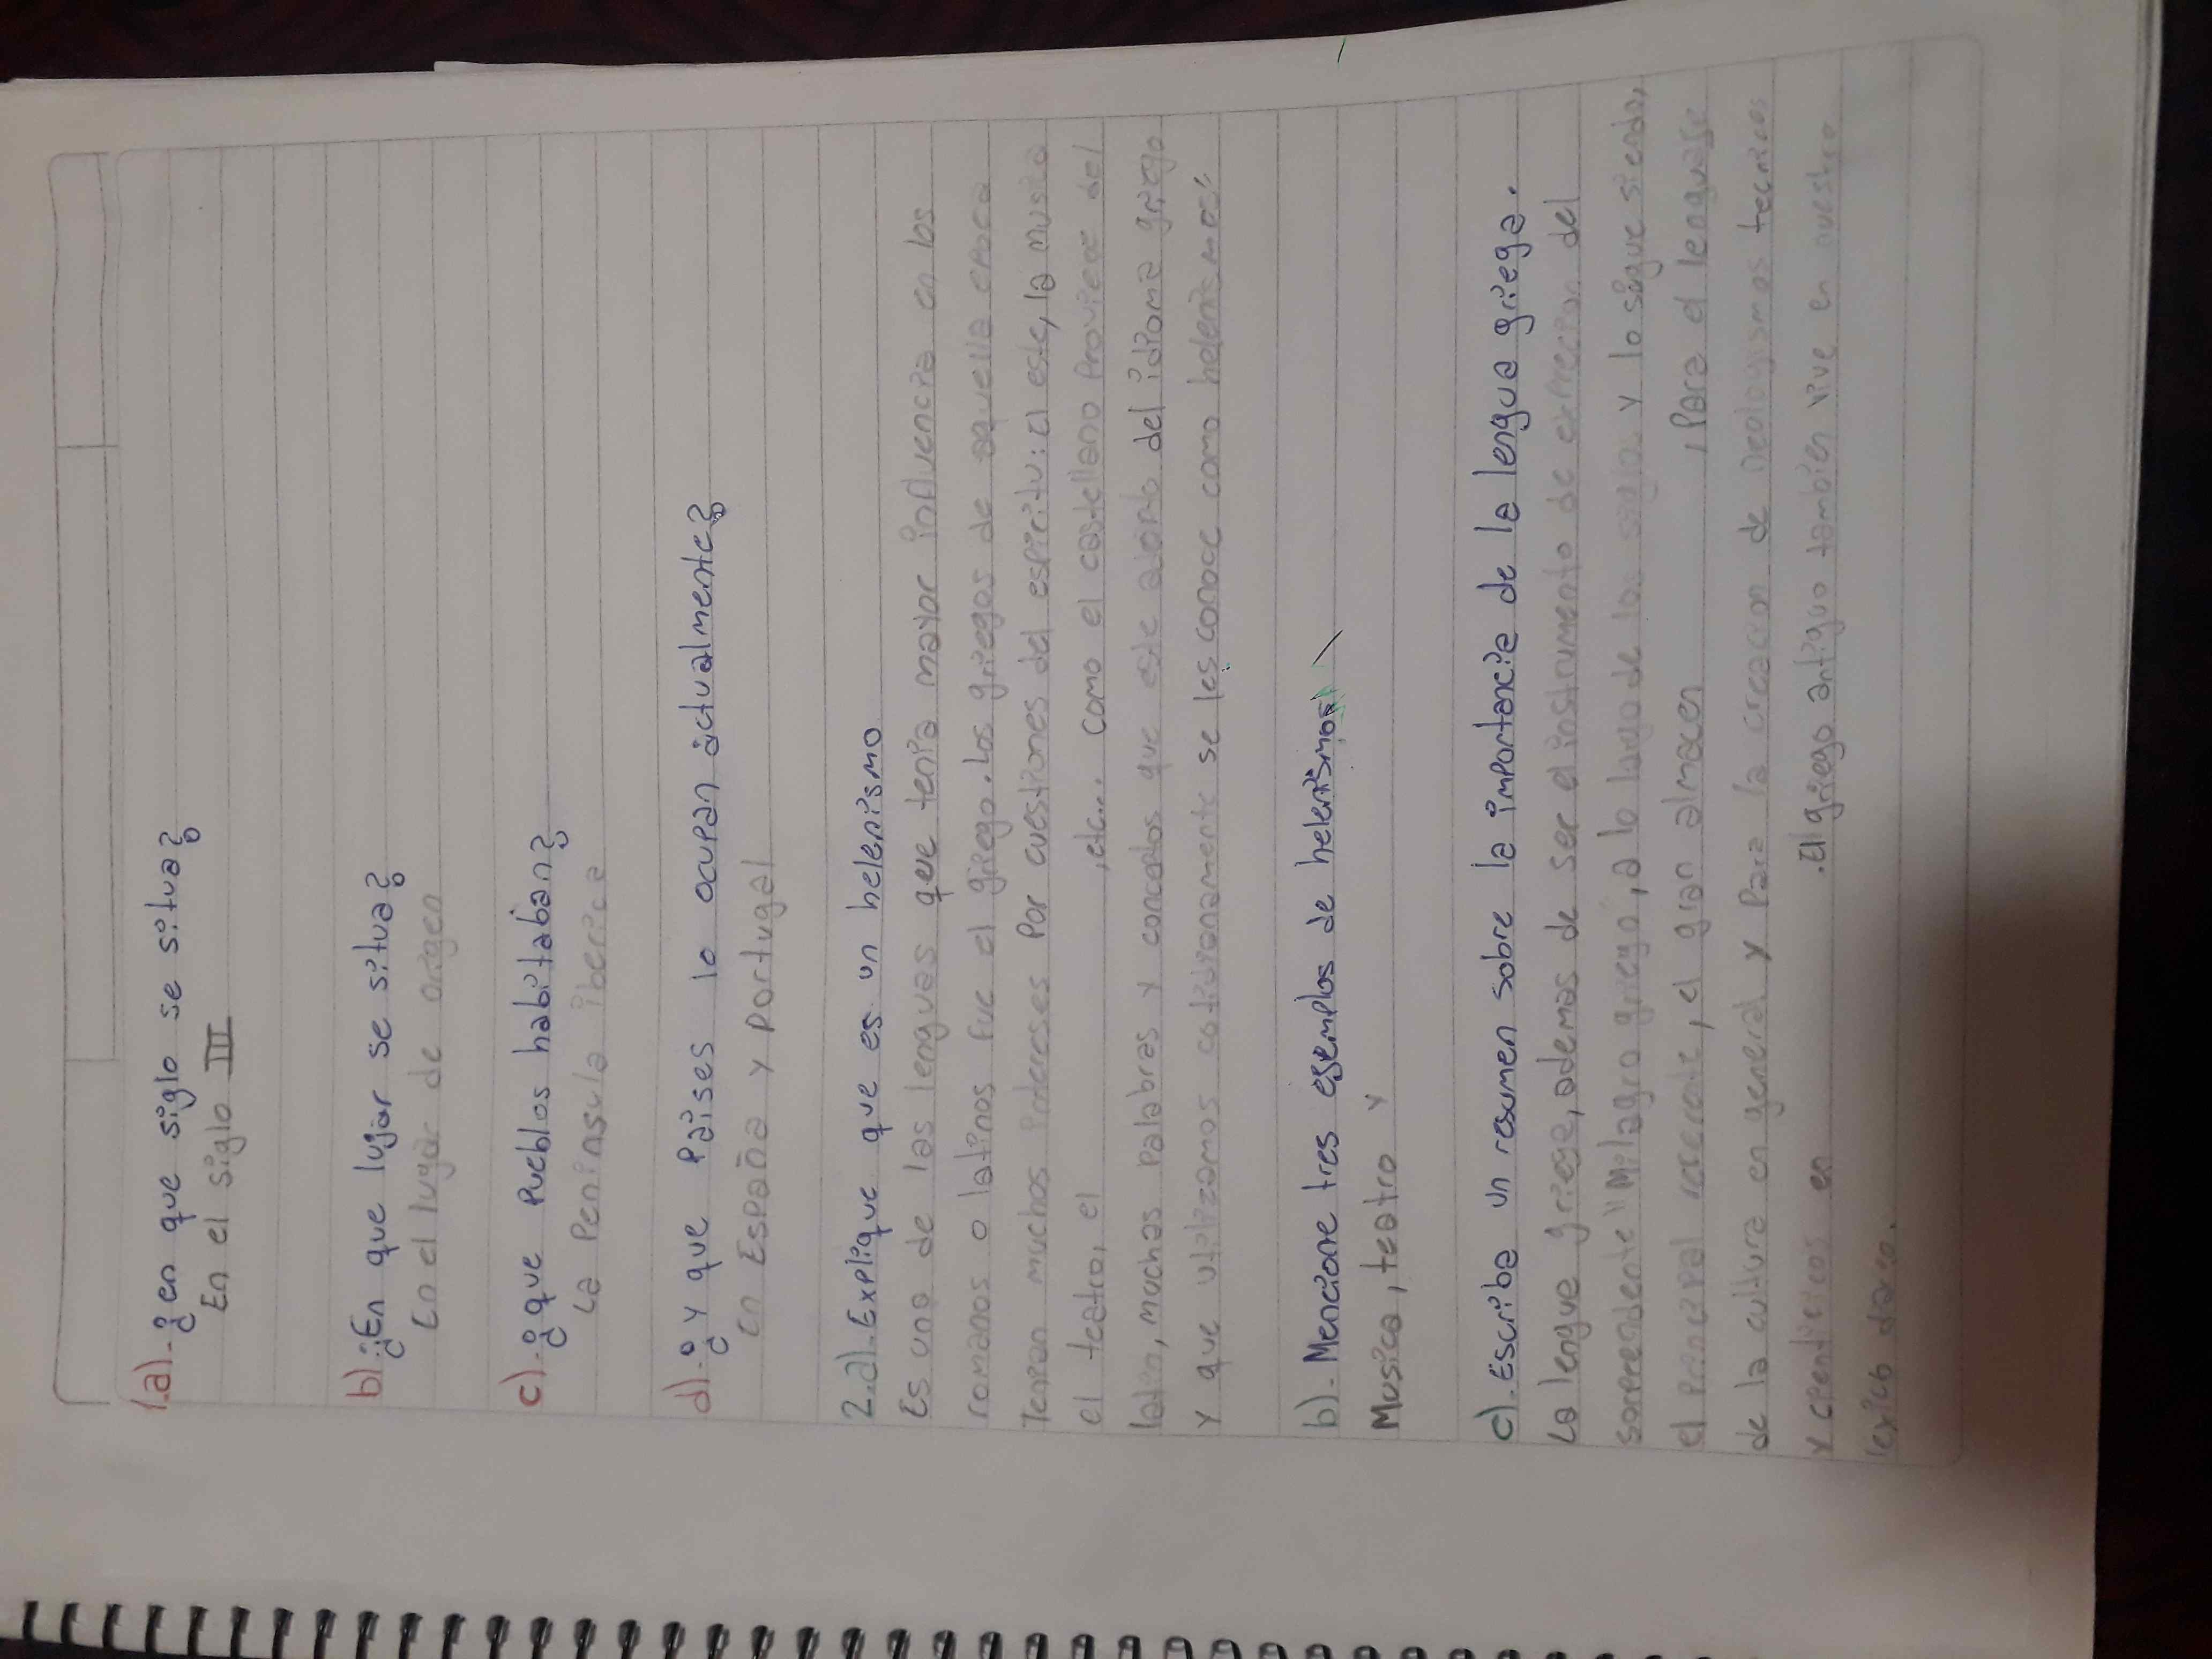 1.a).-¿en que siglo se situa?
En el siglo III
b).¿En que lugar se situa?
En el lugar de origen
c).-¿que Pueblos habitaban?
La Peninsula iberica
d).-¿Y que Paises lo ocupan actualmente?
En España y Portugal
2.a).-Explique que es un helenismo
Es una de las lenguas que tenia mayor influencia en los
romanos o latinos fue el griego. Los griegos de aquella epoca
Tenian muchos intereses Por cuestiones del espiritu: el este, la musica
el teatro, el ,etc... como el castellano Proviene del
latin, muchas Palabras y conceptos que este aporto del idioma griego
Y que utilizamos cotidianamente se les conoce como helenismos"
b).-Mencione tres esemplos de helenismos
Musica, teatro y
c).-Escriba un resumen sobre la importancia de la lengua griega.
La lengua griega, ademas de ser el instrumento de exprecion del
sorprendente "Milagro griego", a lo largo de los siglos y lo sigue siendo,
el principal referente, el gran almacen , Para el lenguage
de la cultura en general y Para la creacion de neologysmos tecnicos
y cientificos en . El griego antiguo tambien vive en nuestro
lexico